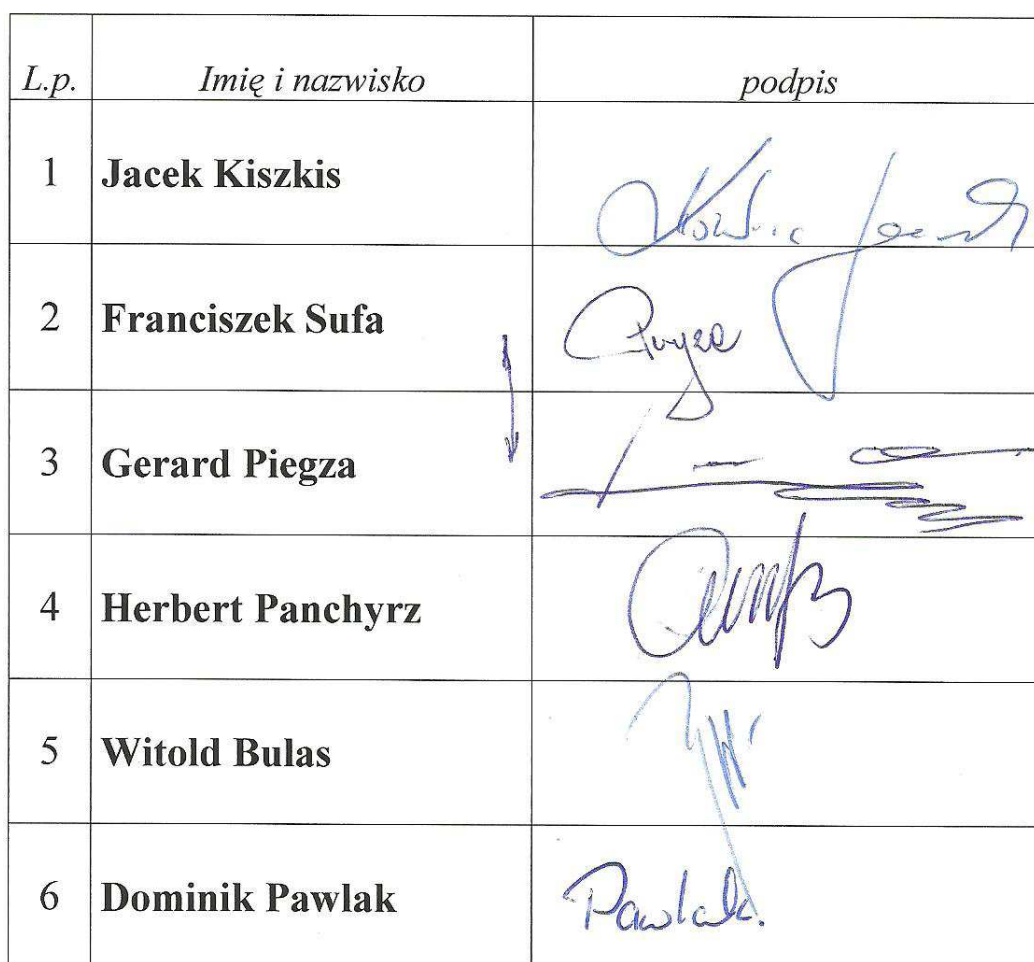 L.p. Imię i nazwisko podpis
1 Jacek Kiszkis
2 Franciszek Sufa
3 Gerard Piegza
4 Herbert Panchyrz
5 Witold Bulas
6 Dominik Pawlak Pawlak.